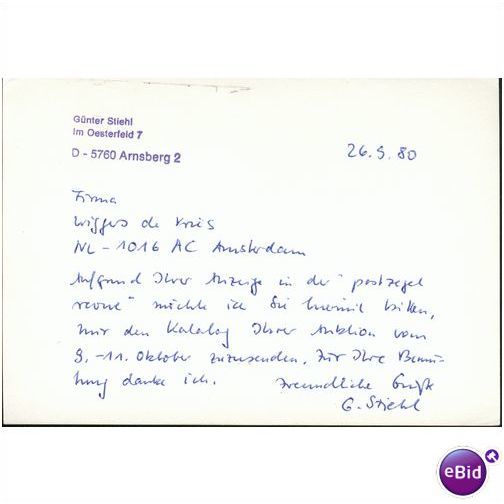 Günter Stiehl
Im Oesterfeld 7
D - 5760 Arnsberg 2
26.9.80
Firma
Wiggers de Vries
NL - 1016 AC Amsterdam
Aufgrund Ihrer Anzeige in der "postzegel
revue" möchte ich Sie hiermit bitten,
mir den Katalog Ihrer Auktion vom
9.-11. Oktober zuzusenden. Für Ihre Bemü-
hung danke ich. Freundliche Grüße
G. Stiehl
eBid